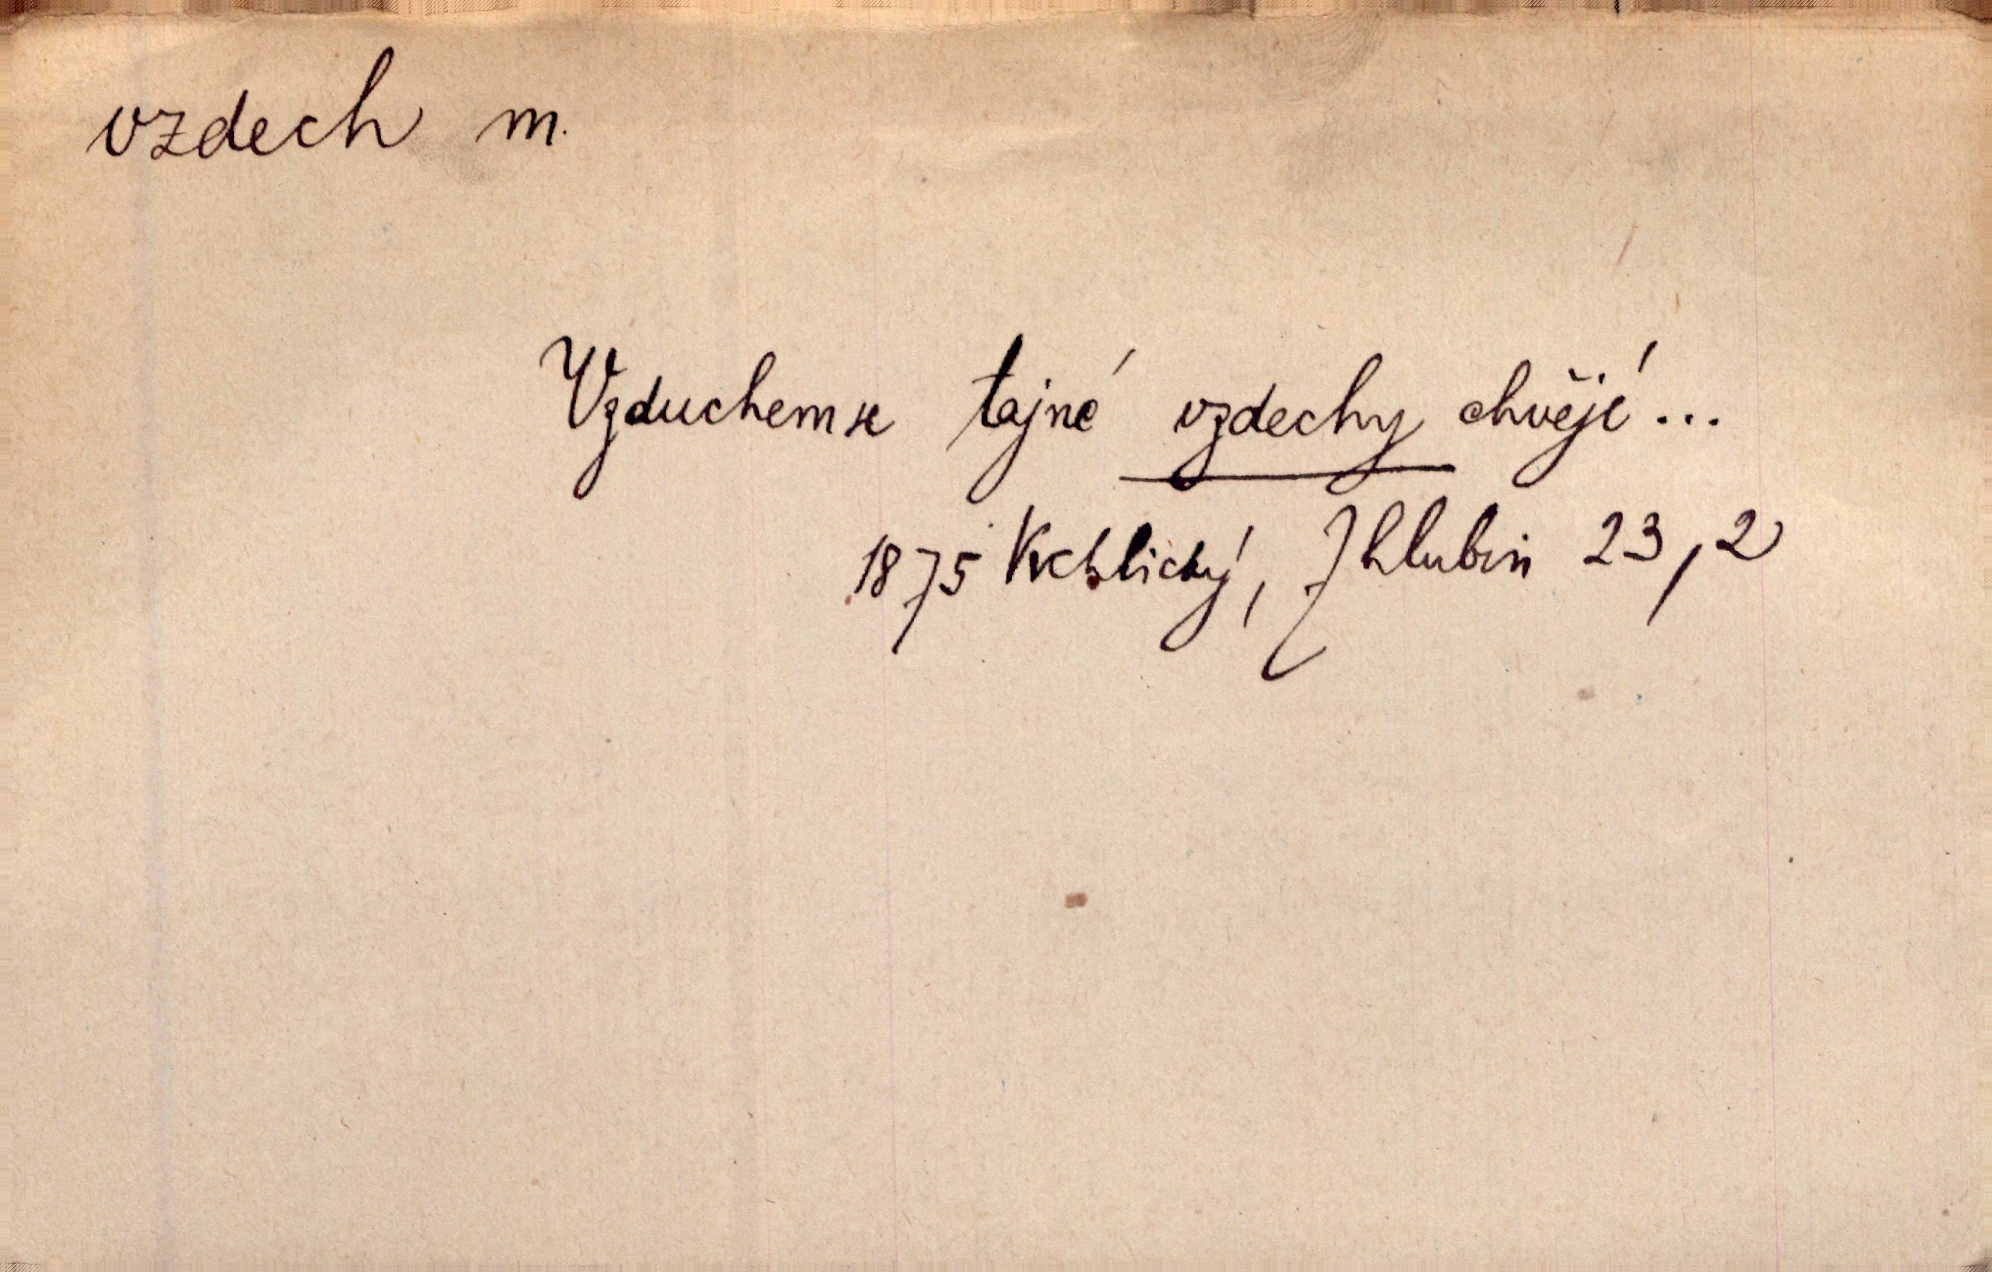 vzdech m.
Vzduchem se tajné vzdechy chvějí...
1875 Vrchlický, Z hlubin 23,2